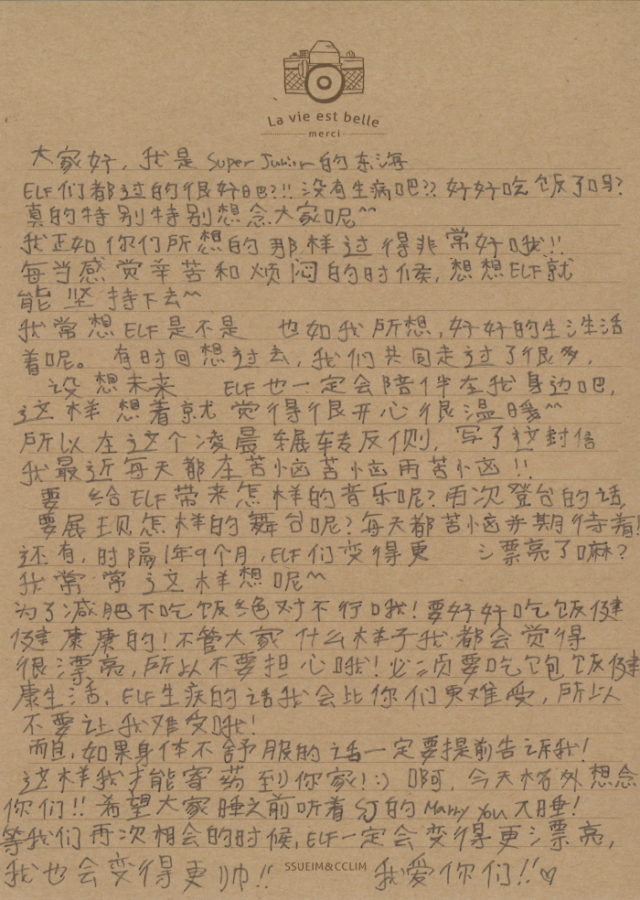 La vie est belle
merci
大家好，我是Super Junior的东海
ELF们都过的很好吧?!! 没有生病吧?? 好好吃饭了吗?
真的特别特别想念大家呢^^
我正如你们所想的那样过得非常好哦!!
每当感觉辛苦和烦闷的时候，想想ELF就
能坚持下去^^
我常想ELF是不是 也如我所想，好好的生活生活
着呢。有时回想过去，我们共同走过了很多，
设想未来 ELF也一定会陪伴在我身边吧，
这样想着就觉得很开心很温暖^^
所以在这个凌晨辗转反侧，写了这封信
我最近每天都在苦恼苦恼再苦恼!!
要 给ELF带来怎样的音乐呢? 再次登台的话，
要展现怎样的舞台呢? 每天都苦恼并期待着!
还有，时隔1年9个月，ELF们变得更 漂亮了嘛?
我常常这样想呢^^
为了减肥不吃饭绝对不行哦! 要好好吃饭健
健康康的! 不管大家什么样子我都会觉得
很漂亮，所以不要担心哦! 必须要吃饱饭健
康生活，ELF生病的话我会比你们更难受，所以
不要让我难受哦!
而且，如果身体不舒服的话一定要提前告诉我!
这样我才能寄药到你家! :) 啊，今天格外想念
你们!! 希望大家睡之前听着SJ的Marry You入睡!
等我们再次相会的时候，ELF一定会变得更漂亮，
我也会变得更帅!! 我爱你们!!♡
SSUEIM&CCLIM